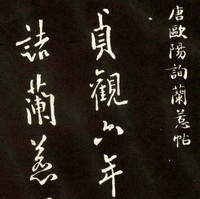 唐歐陽詢蘭惹帖
貞觀六年
諸蘭惹